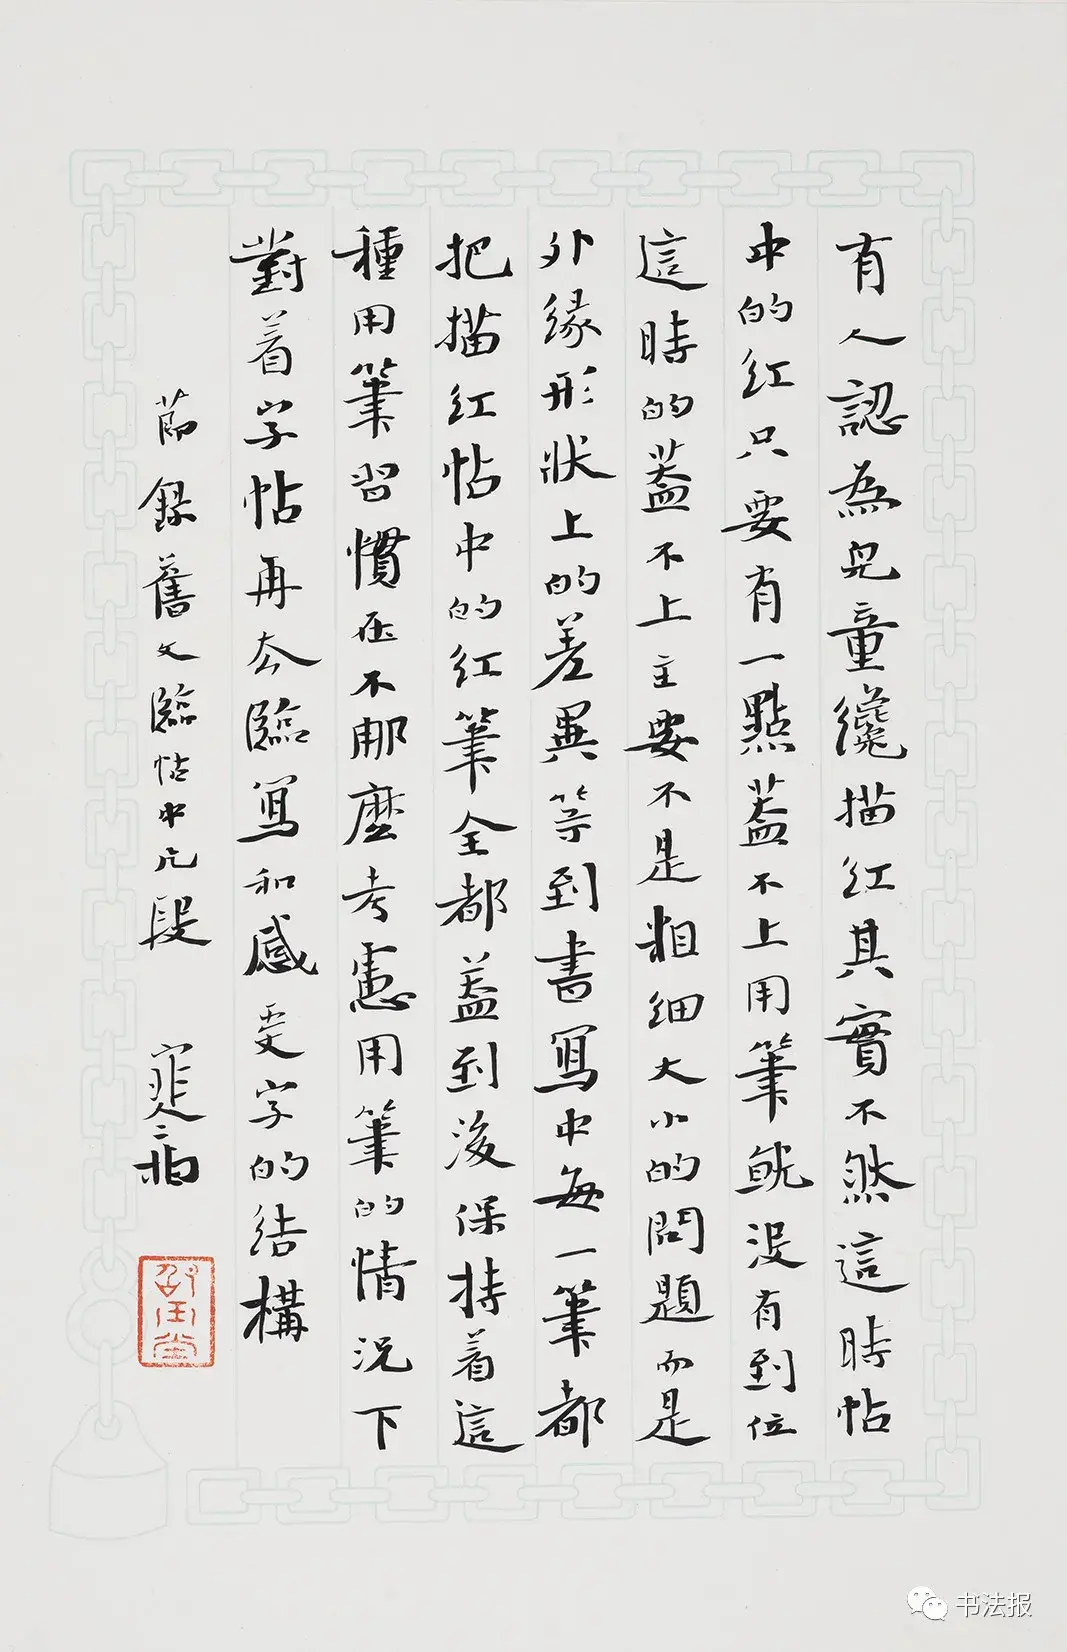 有人認為兒童纔描紅其實不然這時帖
中的紅只要有一點蓋不上用筆就沒有到位
這時的蓋不上主要不是粗細大小的問題而是
外緣形狀上的差異等到書寫中每一筆都
把描紅帖中的紅筆全都蓋到後保持着這
種用筆習慣在不那麼考慮用筆的情況下
對着字帖再去臨寫和感受字的結構
節錄舊文臨帖中片段
书法报